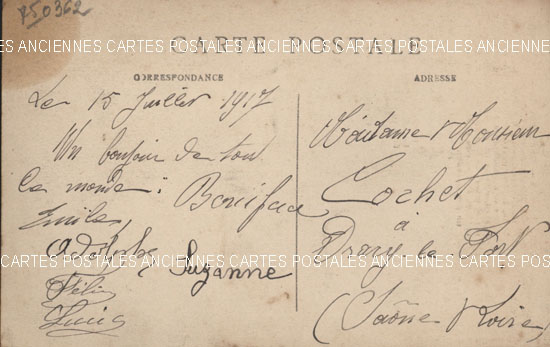 750362
CARTE POSTALE
CARTES POSTALES ANCIENNES CARTES POSTALES ANCIENNES CARTES POSTALES ANCIENNES
CORRESPONDANCE
Le 15 Juillet 1917
Un bonjour de tout
le monde:
Boniface
Emile,
Adolphe
Suzanne
Félix
Lucie
ADRESSE
Madame & Monsieur
Cochet
à
Dracy le Fort
(Saône & Loire)
CARTES POSTALES ANCIENNES CARTES POSTALES ANCIENNES CARTES POSTALES ANCIENNES